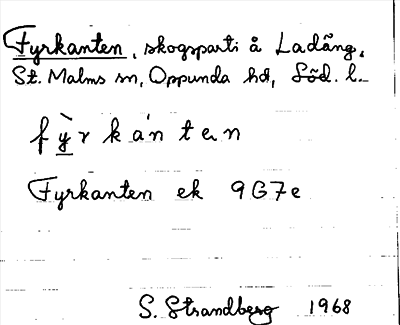 Fyrkanten, skogsparti å Ladäng,
St. Malms sn, Oppunda hd, Söd. l.
fỳ̱rkánten
Fyrkanten ek 9G7e
S. Strandberg 1968